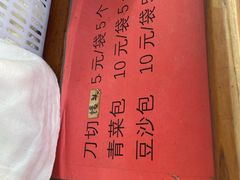 刀切 5元/袋5个
青菜包 10元/袋5
豆沙包 10元/袋5